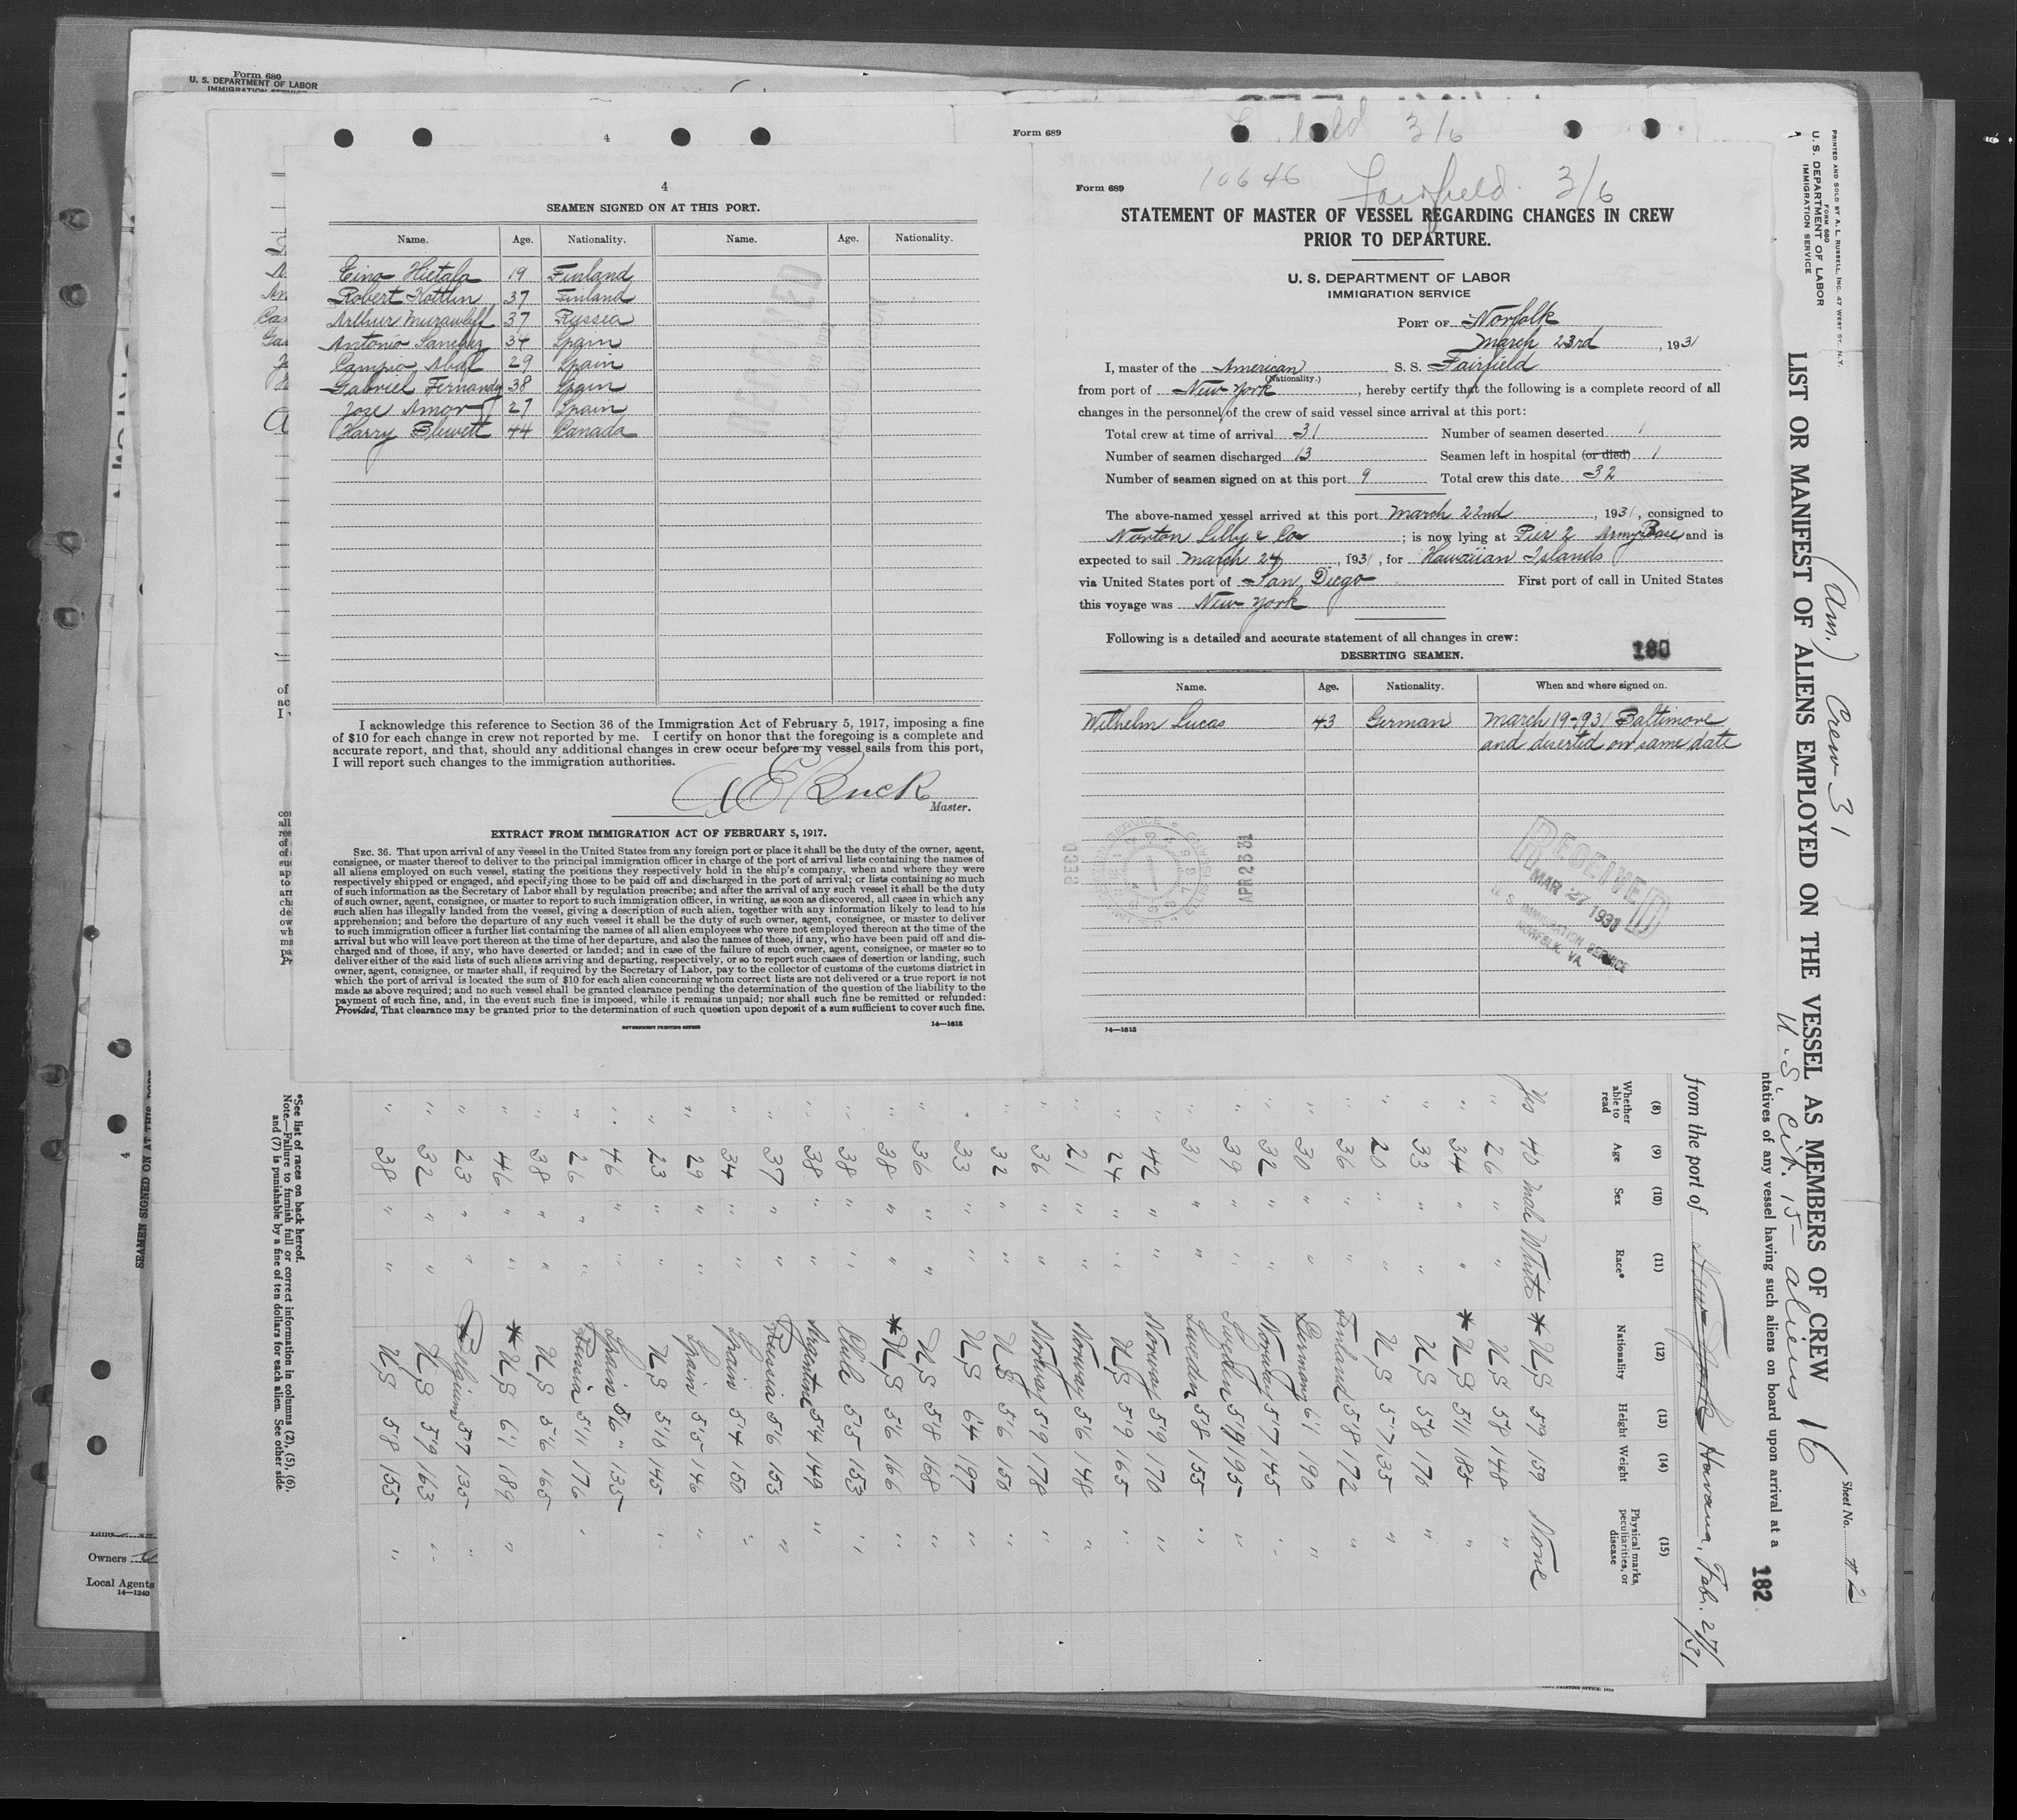 Form 680
U. S. DEPARTMENT OF LABOR
IMMIGRATION SERVICE
4
Form 689
3/6
4
SEAMEN SIGNED ON AT THIS PORT.
Name. Age. Nationality. Name. Age. Nationality.
Eino Hietala 19 Finland
Robert Kottlin 37 Finland
Arthur Murawleff 37 Russia
Antonio Sanchez 34 Spain
Campio Abal 29 Spain
Gabriel Fernandez 38 Spain
Jose Amor 27 Spain
Harry Blewett 44 Canada
I acknowledge this reference to Section 36 of the Immigration Act of February 5, 1917, imposing a fine
of $10 for each change in crew not reported by me. I certify on honor that the foregoing is a complete and
accurate report, and that, should any additional changes in crew occur before my vessel sails from this port,
I will report such changes to the immigration authorities.
A E Buck
Master.
EXTRACT FROM IMMIGRATION ACT OF FEBRUARY 5, 1917.
SEC. 36. That upon arrival of any vessel in the United States from any foreign port or place it shall be the duty of the owner, agent,
consignee, or master thereof to deliver to the principal immigration officer in charge of the port of arrival lists containing the names of
all aliens employed on such vessel, stating the positions they respectively hold in the ship's company, when and where they were
respectively shipped or engaged, and specifying those to be paid off and discharged in the port of arrival; or lists containing so much
of such information as the Secretary of Labor shall by regulation prescribe; and after the arrival of any such vessel it shall be the duty
of such owner, agent, consignee, or master to report to such immigration officer, in writing, as soon as discovered, all cases in which any
such alien has illegally landed from the vessel, giving a description of such alien, together with any information likely to lead to his
apprehension; and before the departure of any such vessel it shall be the duty of such owner, agent, consignee, or master to deliver
to such immigration officer a further list containing the names of all alien employees who were not employed thereon at the time of the
arrival but who will leave port thereon at the time of her departure, and also the names of those, if any, who have been paid off and dis-
charged and of those, if any, who have deserted or landed; and in case of the failure of such owner, agent, consignee, or master so to
deliver either of the said lists of such aliens arriving and departing, respectively, or so to report such cases of desertion or landing, such
owner, agent, consignee, or master shall, if required by the Secretary of Labor, pay to the collector of customs of the customs district in
which the port of arrival is located the sum of $10 for each alien concerning whom correct lists are not delivered or a true report is not
made as above required; and no such vessel shall be granted clearance pending the determination of the question of the liability to the
payment of such fine, and, in the event such fine is imposed, while it remains unpaid; nor shall such fine be remitted or refunded:
Provided, That clearance may be granted prior to the determination of such question upon deposit of a sum sufficient to cover such fine.
GOVERNMENT PRINTING OFFICE 14—1613
Form 689
10646 Fairfield 3/6
STATEMENT OF MASTER OF VESSEL REGARDING CHANGES IN CREW
PRIOR TO DEPARTURE.
U. S. DEPARTMENT OF LABOR
IMMIGRATION SERVICE
PORT OF Norfolk
March 23rd, 1931
I, master of the American S. S. Fairfield
(Nationality.)
from port of New York, hereby certify that the following is a complete record of all
changes in the personnel of the crew of said vessel since arrival at this port:
Total crew at time of arrival 31 Number of seamen deserted 1
Number of seamen discharged 13 Seamen left in hospital (or died) 1
Number of seamen signed on at this port 9 Total crew this date 32
The above-named vessel arrived at this port March 22nd, 1931, consigned to
Norton Lilly & Co; is now lying at Pier 2 Army Base and is
expected to sail March 24, 1931, for Hawaiian Islands
via United States port of San Diego First port of call in United States
this voyage was New York
Following is a detailed and accurate statement of all changes in crew:
180
DESERTING SEAMEN.
Name. Age. Nationality. When and where signed on.
Wilhelm Lucas 43 German March 19-1931 Baltimore
and deserted on same date
REC'D
APR 23 31
RECEIVED
MAR 27 1931
U. S. IMMIGRATION SERVICE
NORFOLK, VA.
14—1613
PRINTED AND SOLD BY A. L. RUSSELL, INC. 47 WEST ST. N. Y.
FORM 680
U. S. DEPARTMENT OF LABOR
IMMIGRATION SERVICE
(Am.) Crew 31
LIST OR MANIFEST OF ALIENS EMPLOYED ON THE VESSEL AS MEMBERS OF CREW
U.S. Cit. 15 - aliens 16
Sheet No. #2
ntatives of any vessel having such aliens on board upon arrival at a
182
from the port of New York Havana, Feb. 27/31
(8) (9) (10) (11) (12) (13) (14) (15)
Whether able to read Age Sex Race* Nationality Height Weight Physical marks, peculiarities, or disease
Yes 40 Male White * U S 5'9 159 None
" 26 " " U S 5'8 148 "
" 34 " " * U S 5'11 185 "
" 33 " " U S 5'8 170 "
" 20 " " U S 5'7 135 "
" 36 " " Finland 5'8 172 "
" 30 " " Germany 6'1 190 "
" 32 " " Norway 5'7 145 "
" 39 " " Sweden 5'9 195 "
" 31 " " Sweden 5'8 155 "
" 42 " " Norway 5'9 170 "
" 24 " " U S 5'9 165 "
" 21 " " Norway 5'6 148 "
" 36 " " Norway 5'9 178 "
" 32 " " U S 5'6 150 "
" 33 " " U S 6'4 197 "
" 36 " " U S 5'8 168 "
" 38 " " * U S 5'6 166 "
" 38 " " Chile 5'5 153 "
" 38 " " Argentine 5'4 149 "
" 37 " " Russia 5'6 153 "
" 34 " " Spain 5'4 150 "
" 29 " " Spain 5'5 146 "
" 23 " " U S 5'10 145 "
" 46 " " Spain 5'6 135
" 26 " " Russia 5'11 176 "
" 38 " " U S 5'6 165
" 46 " " * U S 6'1 189 "
" 23 " " Belgium 5'7 135 "
" 32 " " U S 5'9 163 "
" 38 " " U S 5'8 155 "
*See list of races on back hereof.
Note.—Failure to furnish full or correct information in columns (2), (5), (6),
and (7) is punishable by a fine of ten dollars for each alien. See other side.
SEAMEN SIGNED ON AT THIS PORT
4
Owners
Local Agents
14—1240